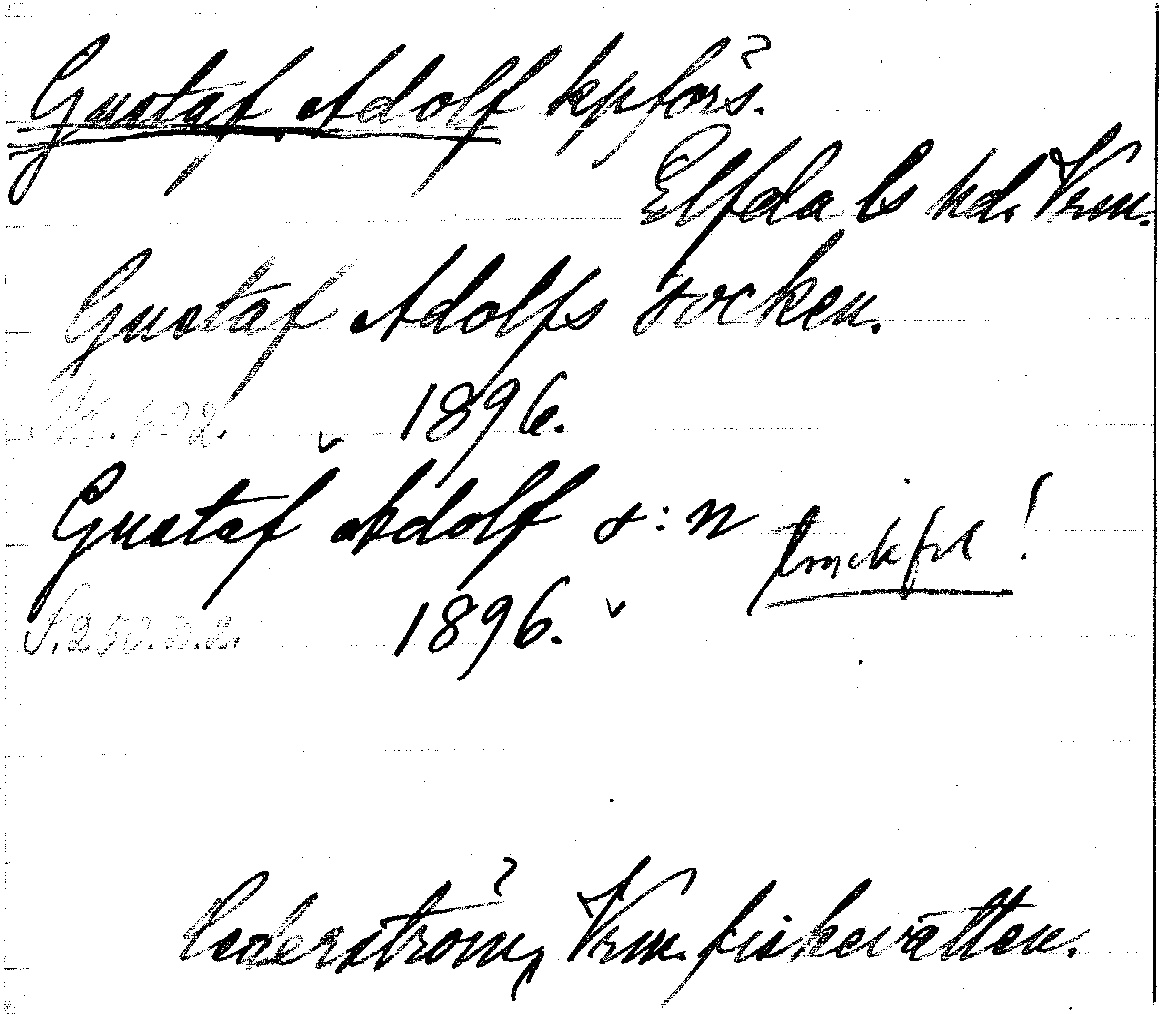 Gustaf Adolf kpförs.
Elfdals hd. Vrm.
Gustaf Adolfs socken.
1896.
Gustaf Adolf s:n tryckfel!
S. 250. 1896.
Cederström, Vrm. fiskevatten.